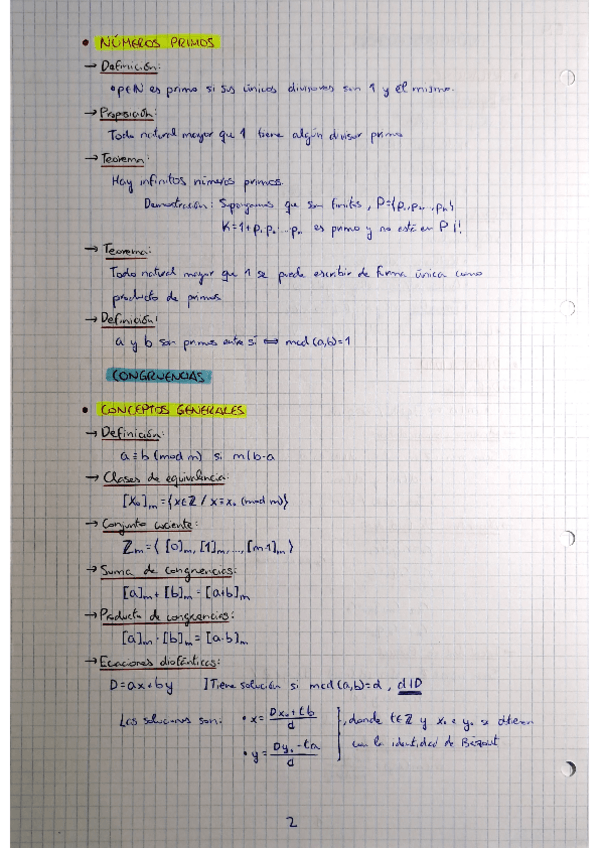 • NÚMEROS PRIMOS
→ Definición:
• p∈N es primo si sus únicos divisores son 1 y él mismo.
→ Proposición:
Todo natural mayor que 1 tiene algún divisor primo
→ Teorema:
Hay infinitos números primos.
Demostración: Supongamos que son finitos, P={p₁,p₂,...,pₙ}
K=1+p₁·p₂·...·pₙ es primo y no está en P ¡!
→ Teorema:
Todo natural mayor que 1 se puede escribir de forma única como
producto de primos
→ Definición:
a y b son primos entre sí ⟺ mcd(a,b)=1
CONGRUENCIAS
• CONCEPTOS GENERALES
→ Definición:
a≡b (mod m) si m|b-a
→ Clases de equivalencia:
[x₀]ₘ={x∈Z / x≡x₀ (mod m)}
→ Conjunto cociente:
Zₘ={[0]ₘ, [1]ₘ,...,[m-1]ₘ}
→ Suma de congruencias:
[a]ₘ+[b]ₘ=[a+b]ₘ
→ Producto de congruencias:
[a]ₘ·[b]ₘ=[a·b]ₘ
→ Ecuaciones diofánticas:
D=ax+by ] Tiene solución si mcd(a,b)=d, d|D
Las soluciones son: • x=(Dx₀+tb)/d }, donde t∈Z y x₀ e y₀ se obtienen
• y=(Dy₀-ta)/d con la identidad de Bézout
2